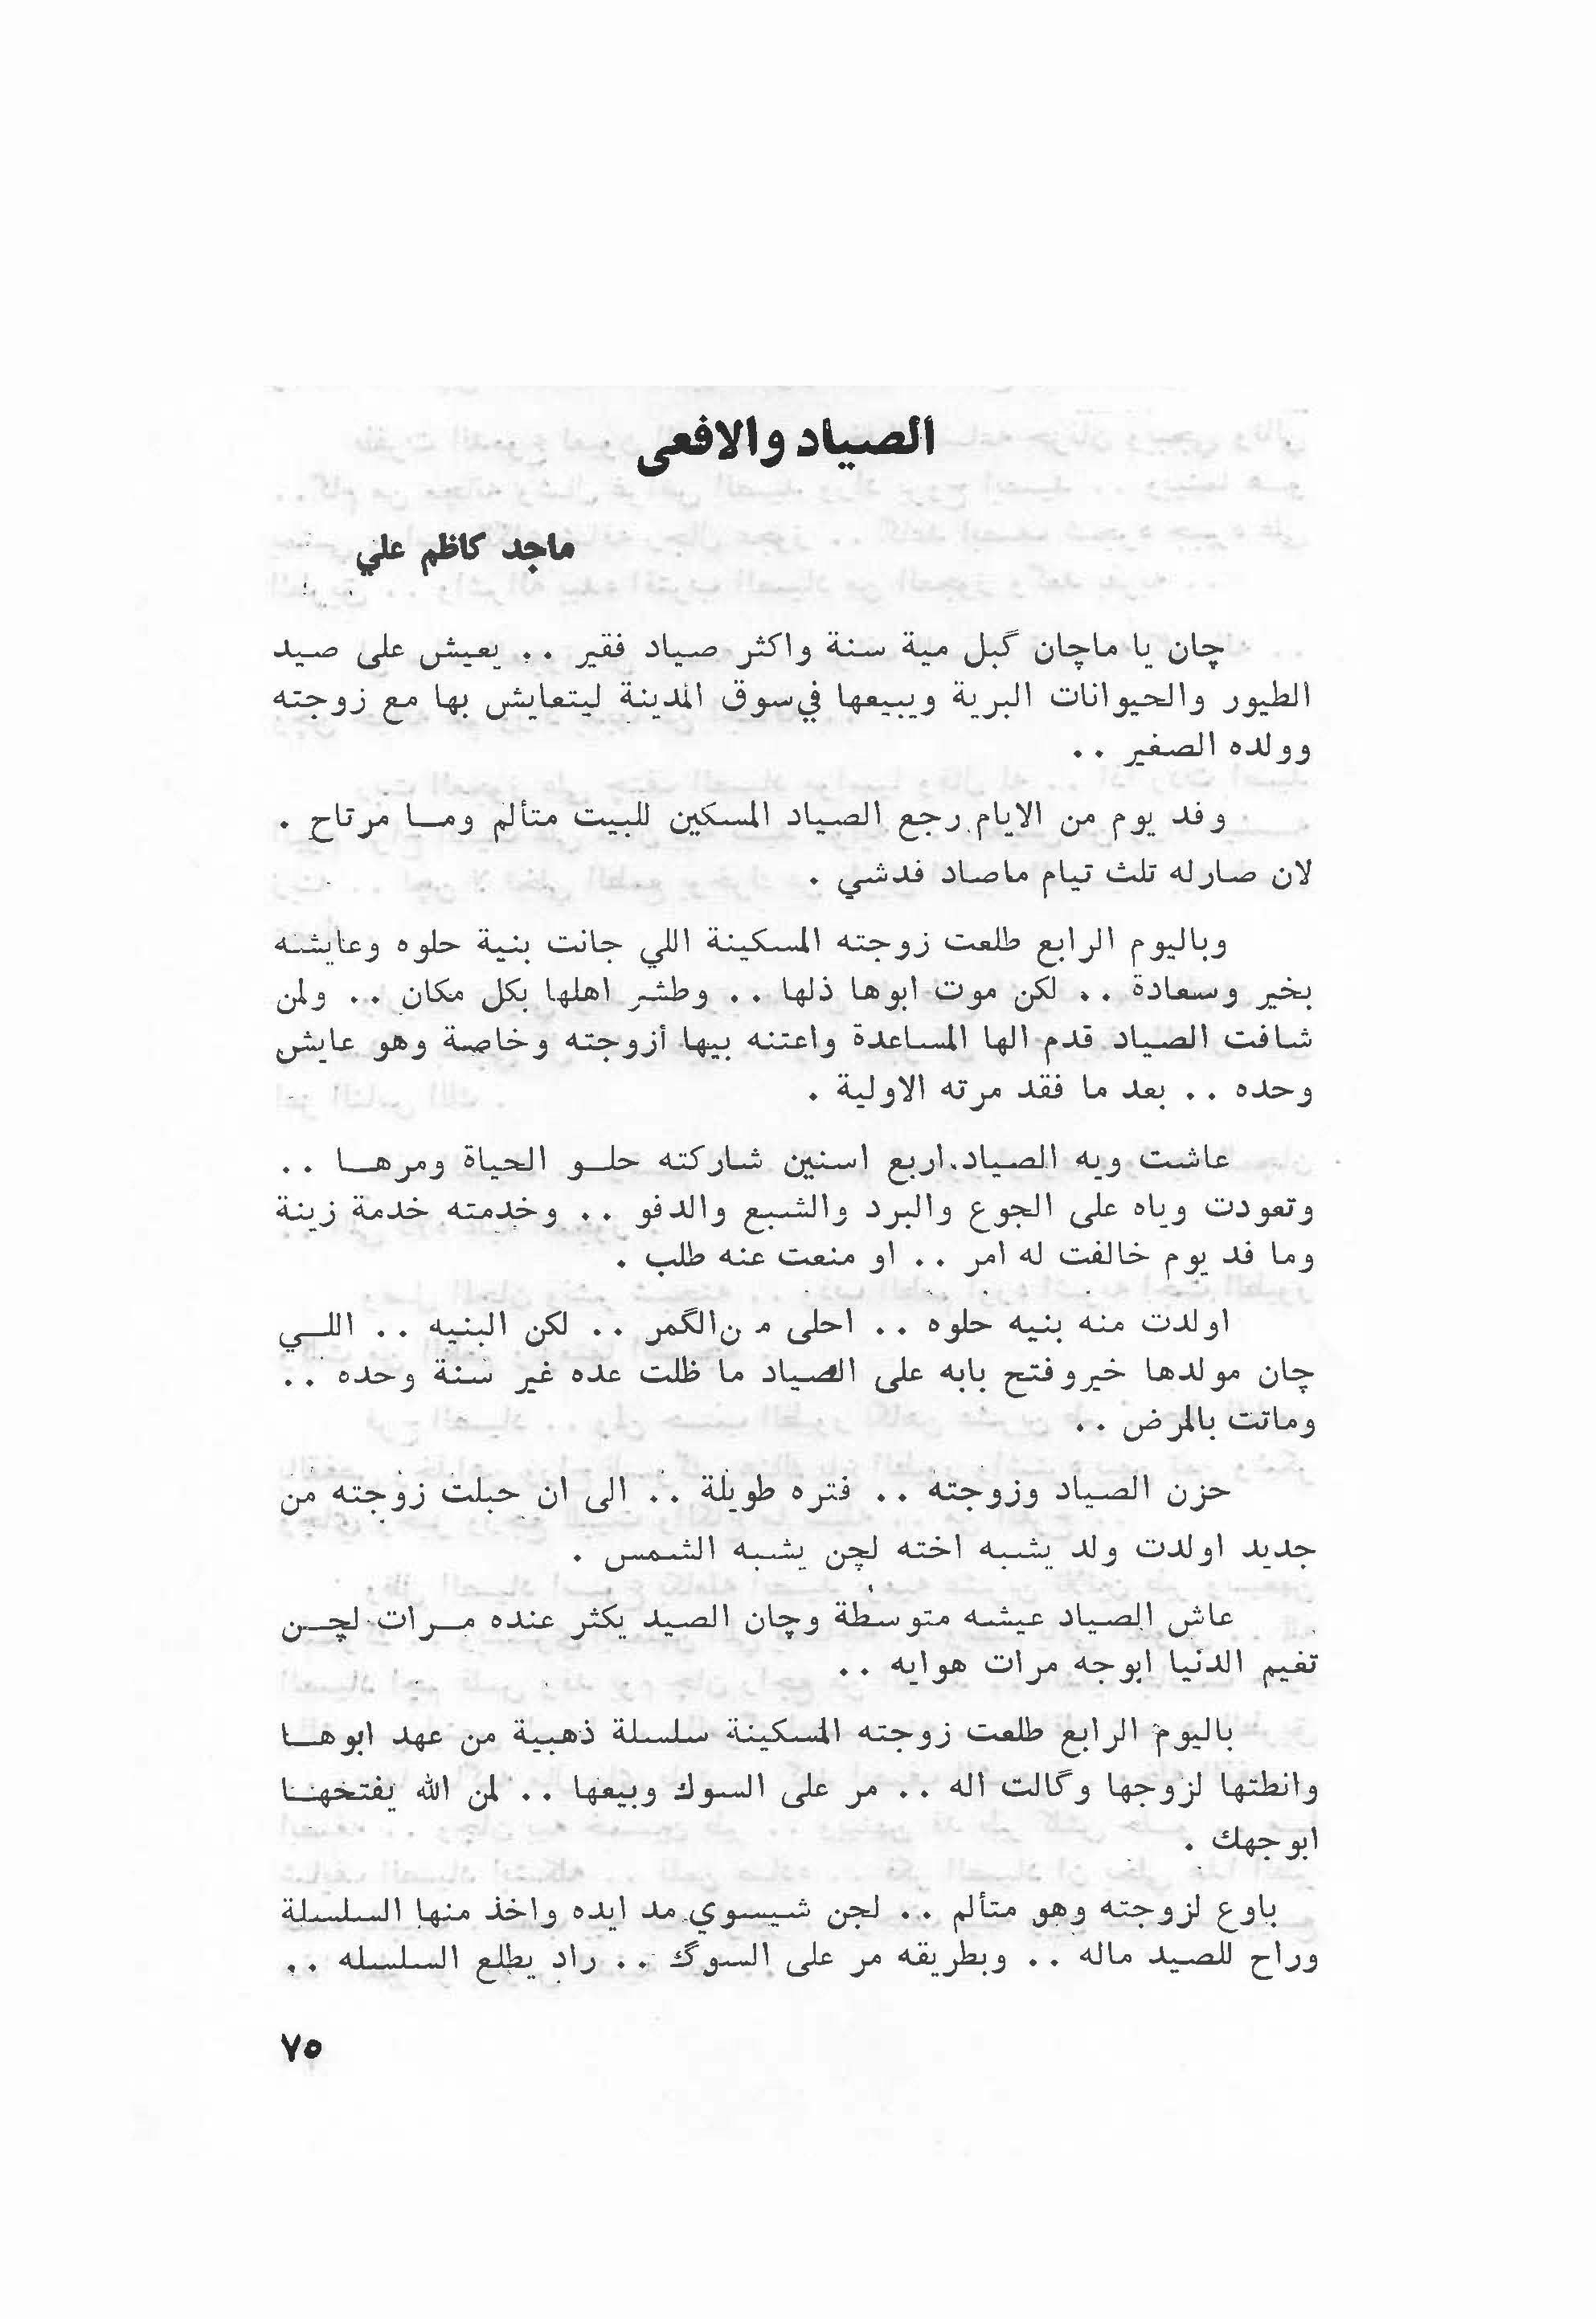 الصياد والافعى
ماجد كاظم علي
چان يا ماچان گبل مية سنة واكثر صياد فقير .. يعيش على صيد
الطيور والحيوانات البرية ويبيعها في سوق المدينة ليتعايش بها مع زوجته
وولده الصغير ..
وفد يوم من الايام رجع الصياد المسكين للبيت متألم وما مرتاح .
لان صارله تلث تيام ماصاد فدشي .
وباليوم الرابع طلعت زوجته المسكينة اللي جانت بنية حلوه وعايشه
بخير وسعادة .. لكن موت ابوها ذلها .. وطشر اهلها بكل مكان .. ولمن
شافت الصياد قدم الها المساعدة واعتنه بيها أزوجته وخاصة وهو عايش
وحده .. بعد ما فقد مرته الاولية .
عاشت ويه الصياد.اربع اسنين شاركته حلو الحياة ومرها ..
وتعودت وياه على الجوع والبرد والشبع والدفو .. وخدمته خدمة زينة
وما فد يوم خالفت له امر .. او منعت عنه طلب .
اولدت منه بنيه حلوه .. احلى م نالگمر .. لكن البنيه .. اللي
چان مولدها خير وفتح بابه على الصياد ما ظلت عده غير سنة وحده ..
وماتت بالمرض ..
حزن الصياد وزوجته .. فتره طويلة .. الى ان حبلت زوجته من
جديد اولدت ولد يشبه اخته لچن يشبه الشمس .
عاش الصياد عيشه متوسطة وچان الصيد يكثر عنده مرات لچن
تغيم الدنيا ابوجه مرات هوايه ..
باليوم الرابع طلعت زوجته المسكينة سلسلة ذهبية من عهد ابوها
وانطتها لزوجها وگالت اله .. مر على السوك وبيعها .. لمن الله يفتحهنا
ابوجهك .
باوع لزوجته وهو متألم .. لجن شيسوي مد ايده واخذ منها السلسلة
وراح للصيد ماله .. وبطريقه مر على السوگ .. راد يطلع السلسله ..
٧٥